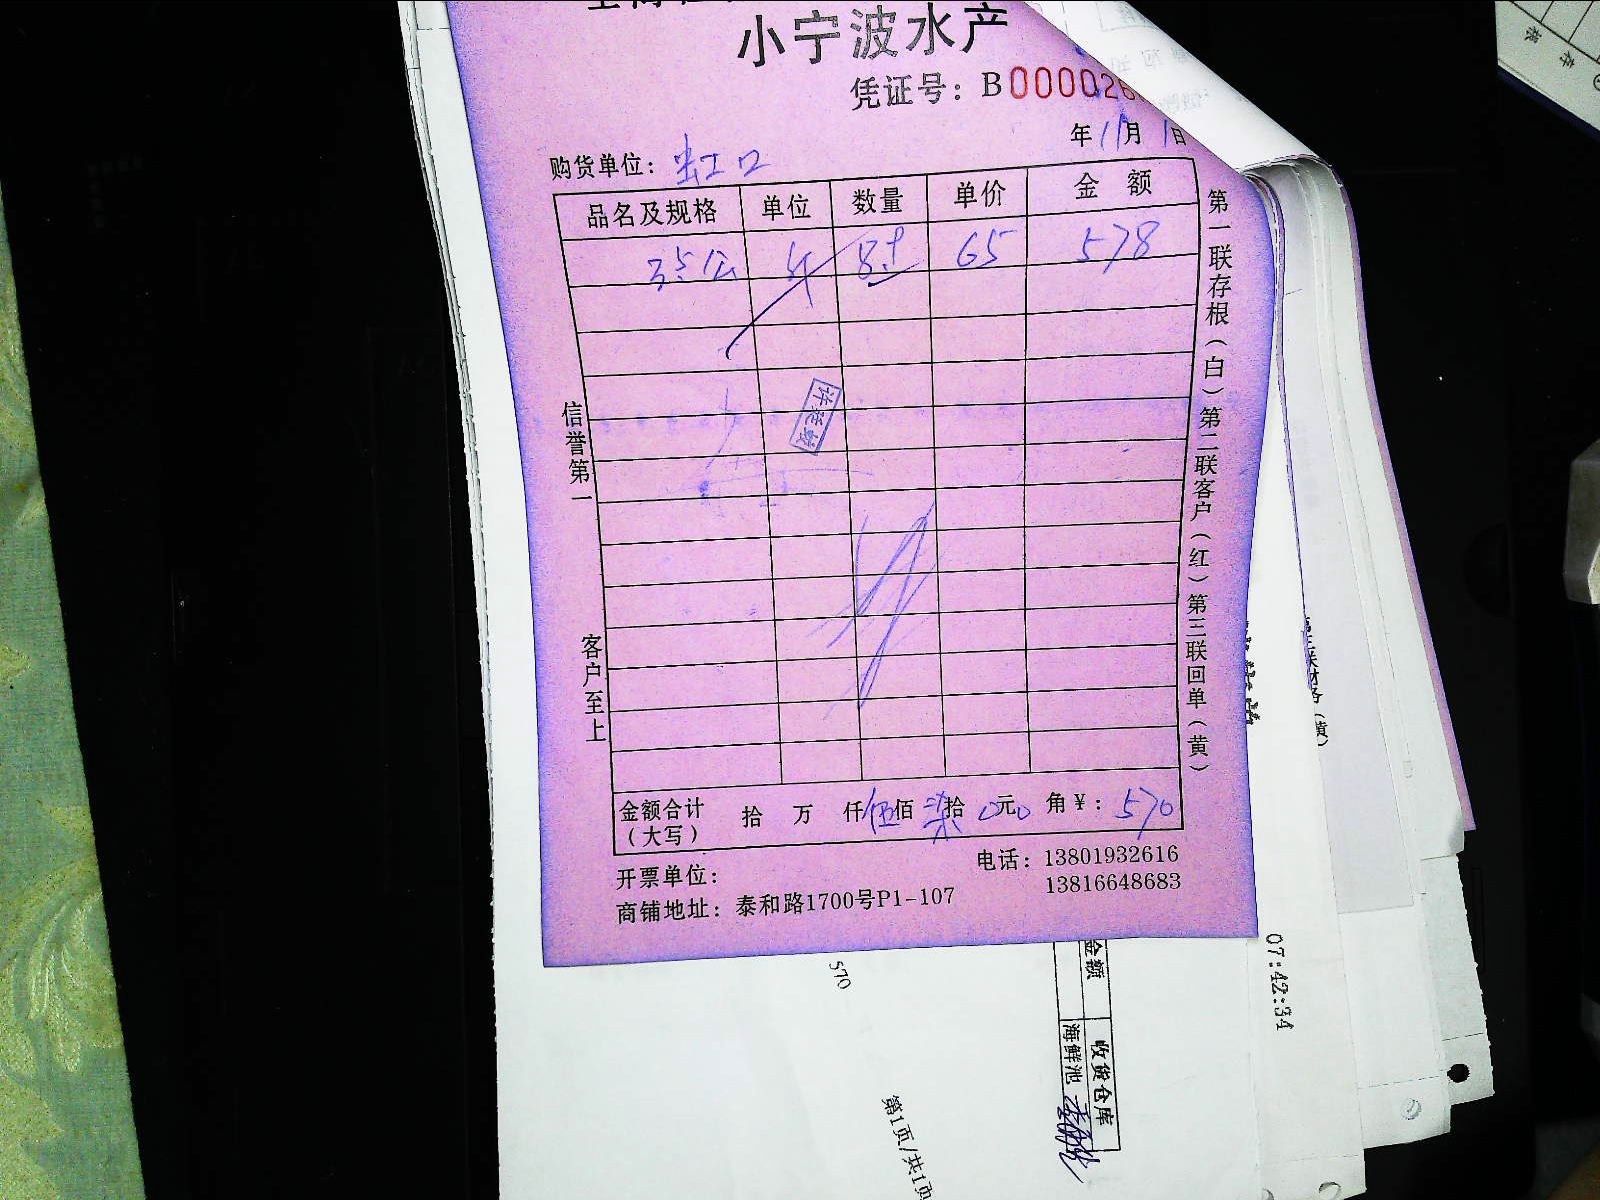 小宁波水产
凭证号：B000026
年11月1日
购货单位：虹口
品名及规格 单位 数量 单价 金额
65 578
信誉第一
客户至上
第一联存根（白）第二联客户（红）第三联回单（黄）
金额合计（大写） 拾 万 仟伍佰柒拾0元0角￥：570
开票单位：
电话：13801932616
13816648683
商铺地址：泰和路1700号P1-107
570
金额
收货仓库
海鲜池
07:42:34
第1页/共1页